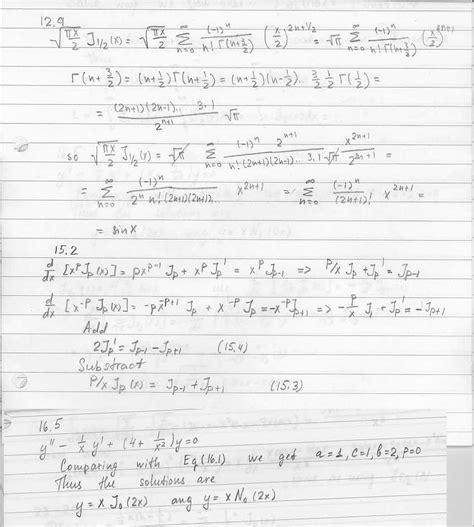 12.9
√(πx/2) J_{1/2}(x) = √(πx/2) Σ_{n=0}^{∞} (-1)^n / (n! Γ(n+3/2)) (x/2)^{2n+1/2} = √π Σ_{n=0}^{∞} (-1)^n / (n! Γ(n+3/2)) (x/2)^{2n+1}
Γ(n+3/2) = (n+1/2)Γ(n+1/2) = (n+1/2)(n-1/2)... 3/2 1/2 Γ(1/2) =
= (2n+1)(2n-1)... 3·1 / 2^{n+1} √π
so √(πx/2) J_{1/2}(x) = √π Σ_{n=0}^{∞} (-1)^n 2^{n+1} / (n! (2n+1)(2n-1)... 3.1 √π) x^{2n+1} / 2^{2n+1} =
= Σ_{n=0}^{∞} (-1)^n / (2^n n! (2n+1)(2n-1)...) x^{2n+1} = Σ_{n=0}^{∞} (-1)^n / (2n+1)! x^{2n+1} =
= sinx
15.2
d/dx [x^p J_p(x)] = px^{p-1} J_p + x^p J_p' = x^p J_{p-1} => p/x J_p + J_p' = J_{p-1}
d/dx [x^{-p} J_p(x)] = -px^{-p+1} J_p + x^{-p} J_p' = -x^{-p} J_{p+1} => -p/x J_p + J_p' = -J_{p+1}
Add
2J_p' = J_{p-1} - J_{p+1} (15.4)
Substract
p/x J_p(x) = J_{p-1} + J_{p+1} (15.3)
16.5
y'' - 1/x y' + (4 + 1/x²)y = 0
Comparing with Eq(16.1) we get a=1, c=1, b=2, p=0
Thus the solutions are
y = x J_0(2x) ang y = x N_0(2x)